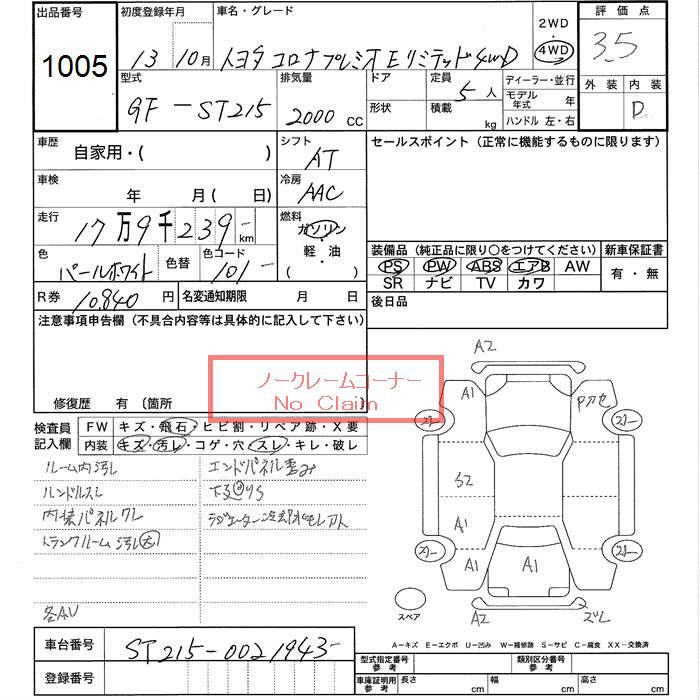 出品番号
1005
初度登録年月
13 10月
車名・グレード
トヨタ コロナプレミオ Eリミテッド 4WD
2WD
4WD
評価点
3.5
外装 内装
D
型式
GF-ST215
排気量
2000 cc
ドア
形状
定員
5人
積載
kg
ディーラー・並行
モデル年式 年
ハンドル 左・右
車歴
自家用・( )
シフト
AT
車検
年 月( 日)
冷房
AAC
走行
17万9千239- km
燃料
ガソリン・軽・油・( )
色
パールホワイト
色替
色コード
101-
R券
10,840 円
名変通知期限 月 日
セールスポイント (正常に機能するものに限ります)
装備品 (純正品に限り○をつけてください)
PS PW ABS エアB AW
SR ナビ TV カワ
新車保証書
有・無
後日品
注意事項申告欄 (不具合内容等は具体的に記入して下さい)
修復歴 有 〔箇所
ノークレームコーナー
No Claim
検査員記入欄
FW キズ・飛石・ヒビ割・リペア跡・X要
内装 キズ・汚レ・コゲ・穴・スレ・キレ・破レ
ルーム内汚レ
ハンドルスレ
内装パネルワレ
トランクルーム汚レ大
エンドパネル歪み
各AU
A2
A1
S2
A1
A1
A1
A2
ズレ
スペア
A-キズ E-エクボ U-凹み W-補修跡 S-サビ C-腐食 XX-交換済
車台番号
ST215-0021943-
登録番号
型式指定番号 参考
類別区分番号 参考
車庫証明用 参考
長さ cm
幅 cm
高さ cm